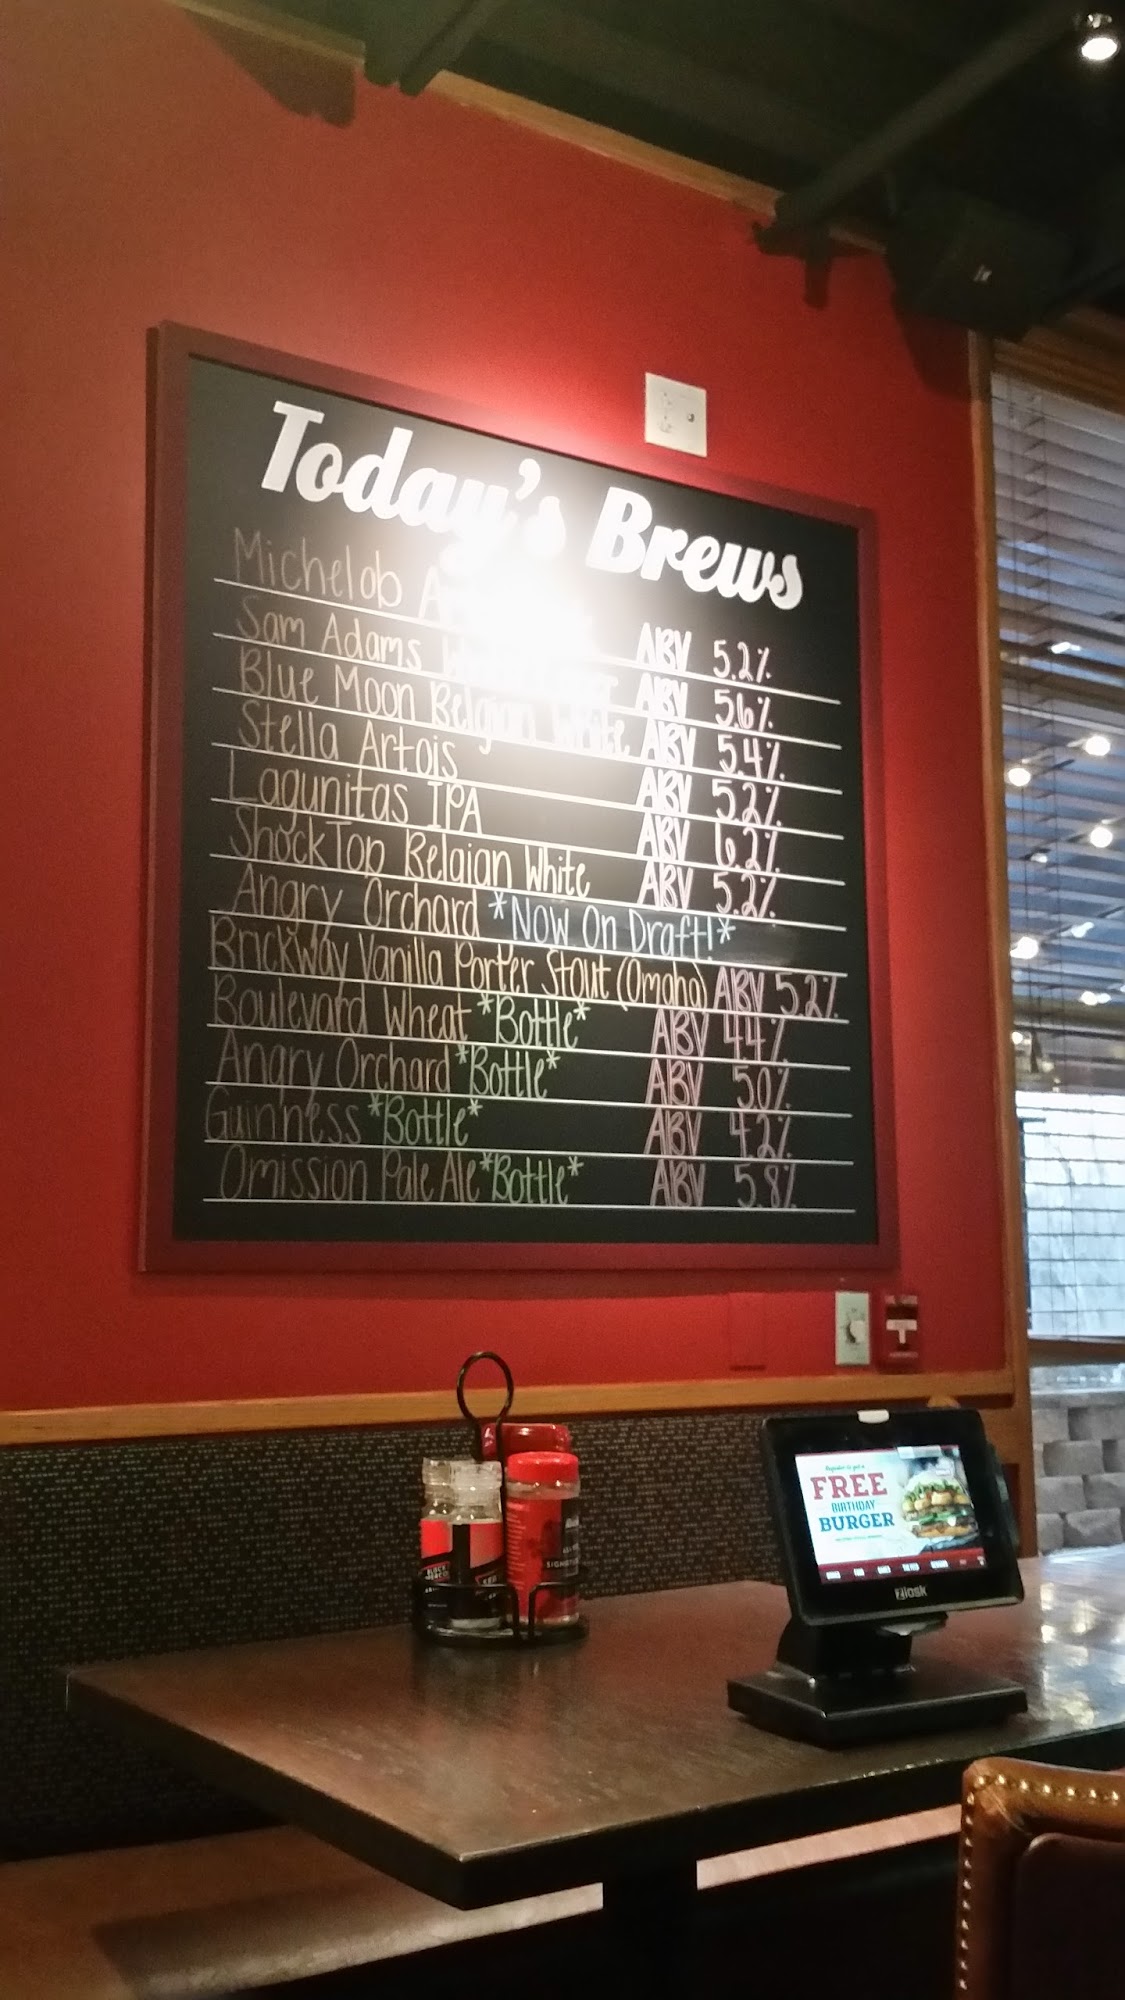 Today's Brews
Michelob
ABV 5.2%
Sam Adams ABV 5.6%
Blue Moon Belgian White ABV 5.4%
Stella Artois ABV 5.2%
Lagunitas IPA ABV 6.2%
ShockTop Belgian White ABV 5.2%
Angry Orchard *Now On Draft!*
Brickway Vanilla Porter Stout (Omaha) ABV 5.2%
Boulevard Wheat *Bottle* ABV 4.4%
Angry Orchard *Bottle* ABV 5.0%
Guinness *Bottle* ABV 4.2%
Omission Pale Ale *Bottle* ABV 5.8%
FREE
BIRTHDAY
BURGER
Ziosk